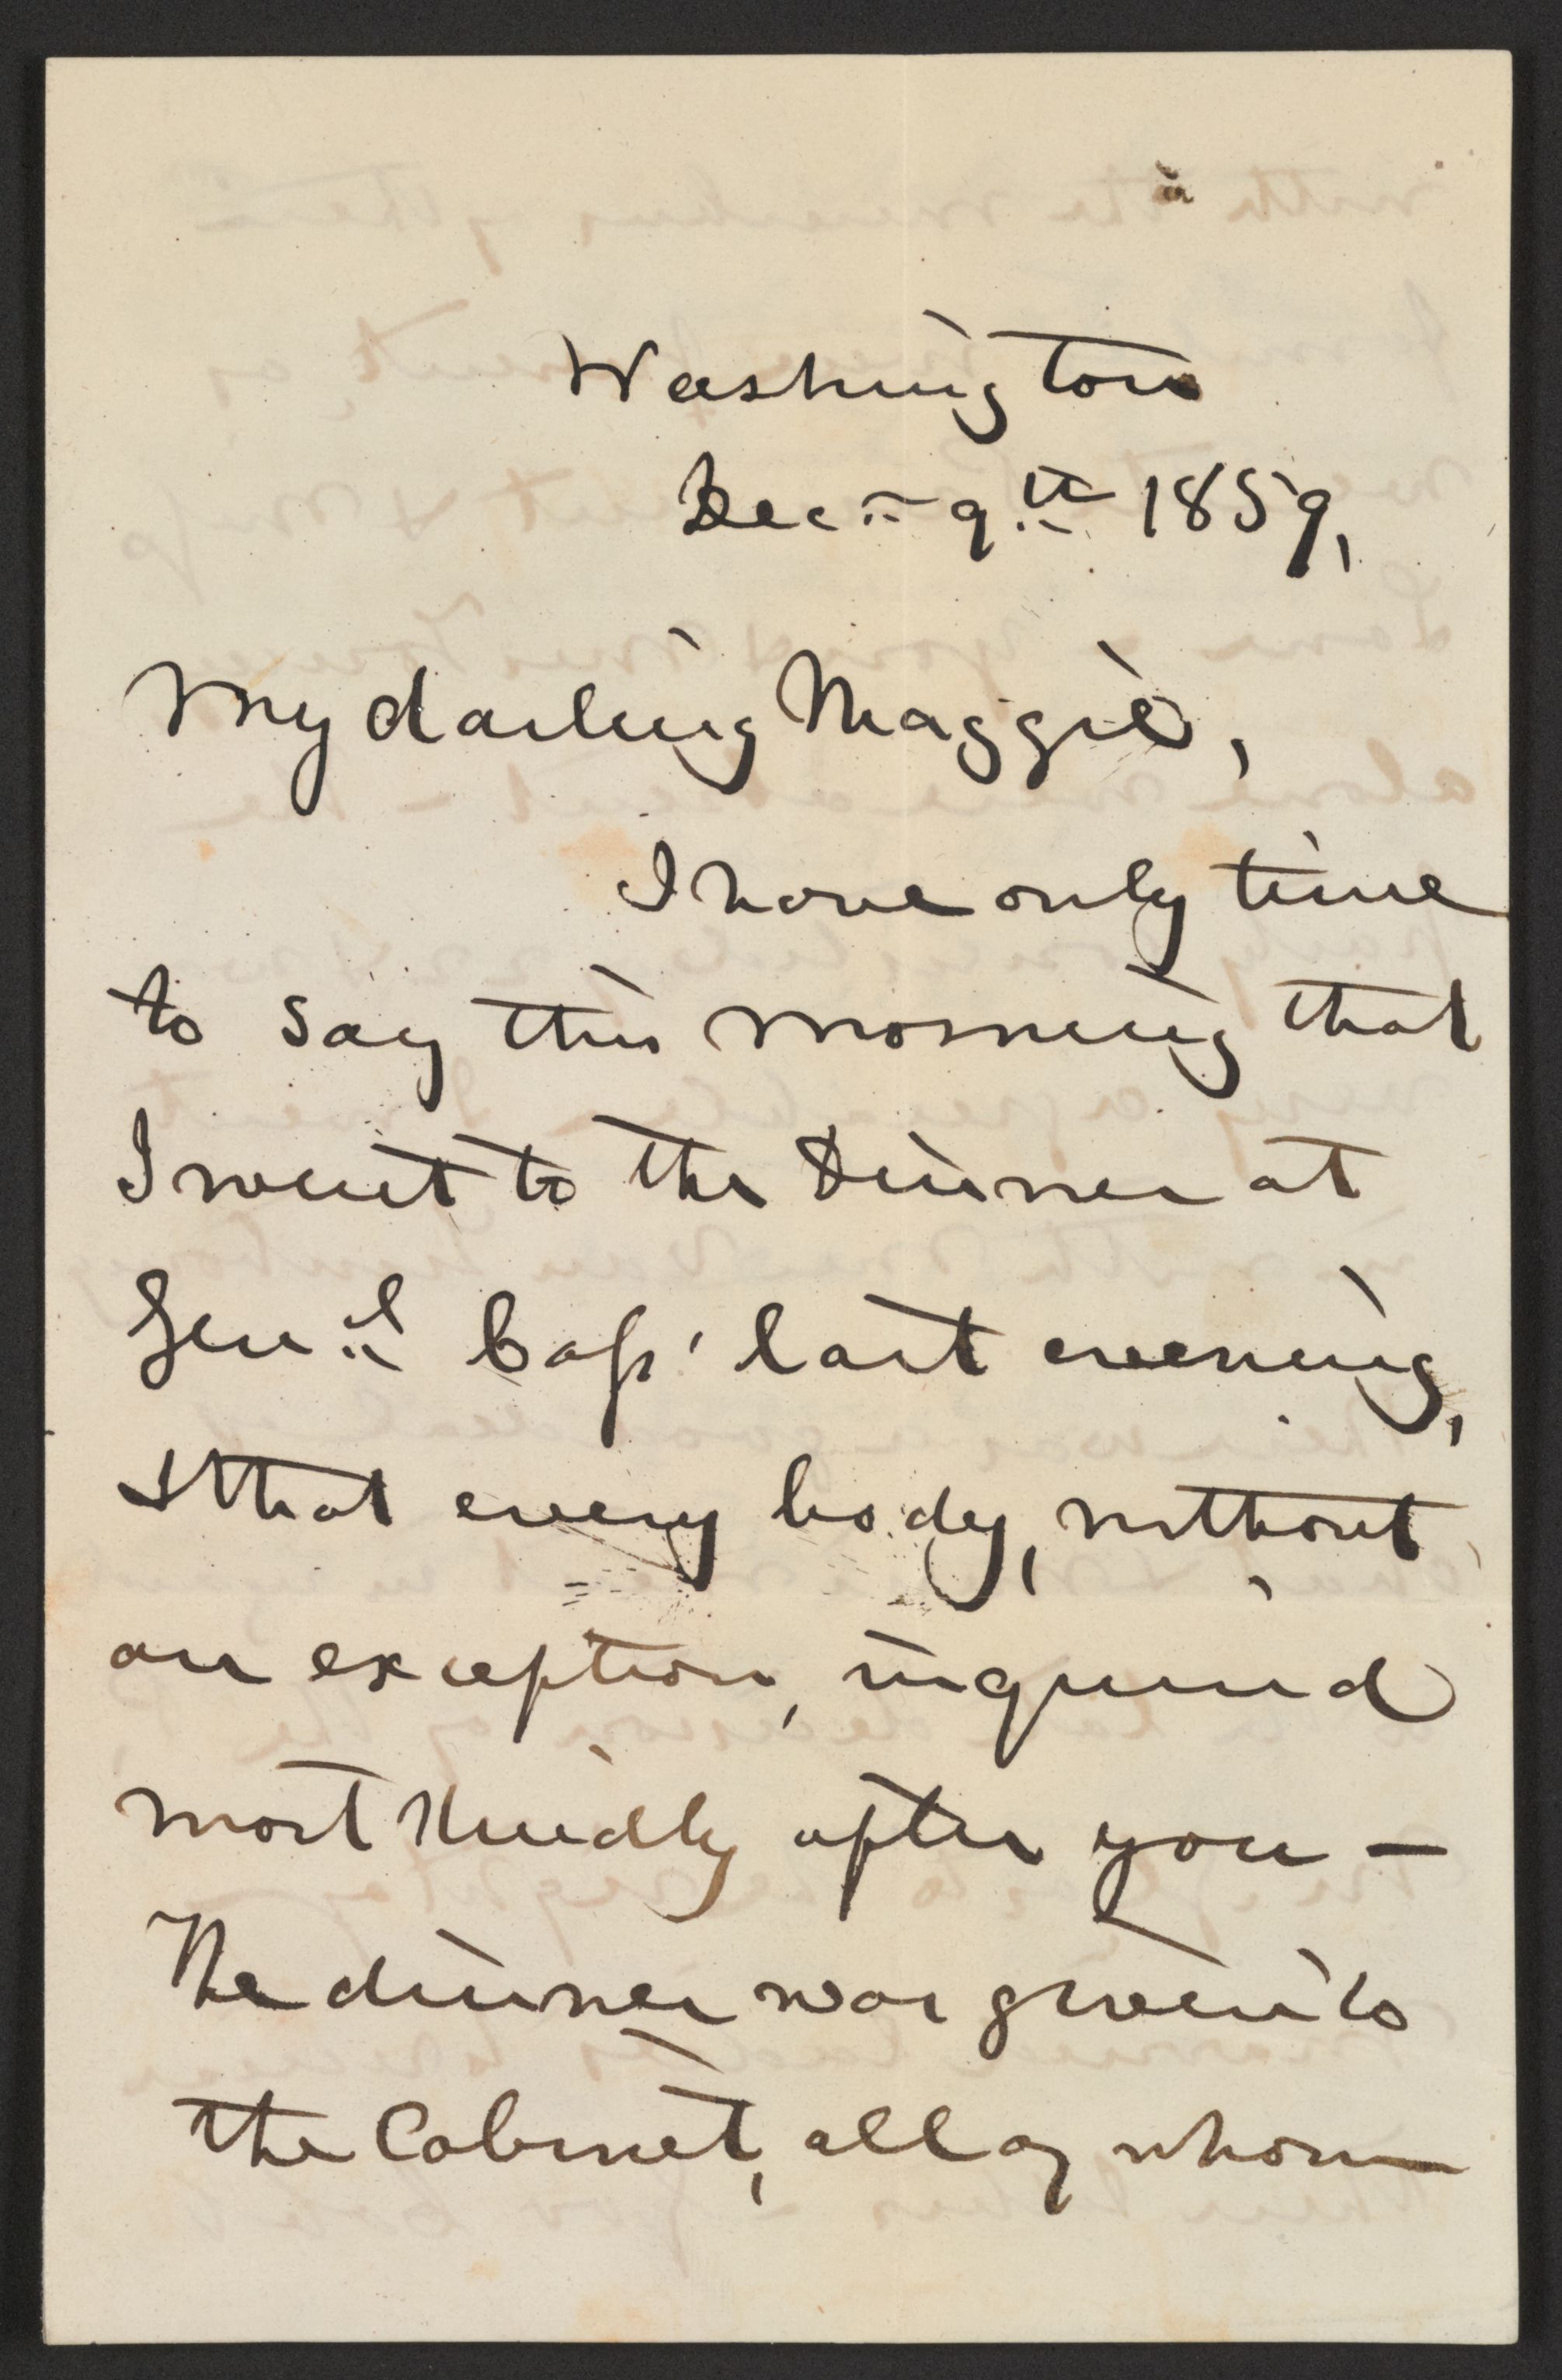 Washington
Dec. 9th 1859,
My darling Maggie,
I have only time
to say this morning that
I went to the Dinner at
Genl Cass' last evening,
& that every body, without
an exception, inquired
most kindly after you —
The dinner was given to
the Cabinet, all of whom